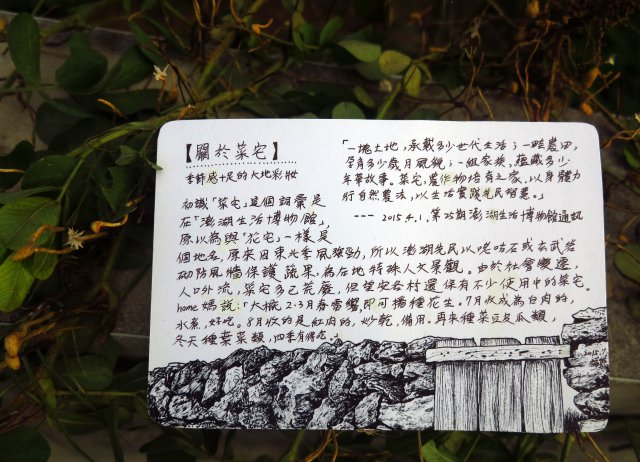 【關於菜宅】
季節感十足的大地彩妝
「一塊土地，承載多少世代生活；一畦農田，
孕育多少歲月風貌；一組家族，蘊藏多少
年華故事。菜宅，農作物培育之家，以身體力
行自然農法，以生活實踐先民智慧。」
--- 2015.4.1，第75期澎湖生活博物館通訊
初識「菜宅」這個詞彙是
在「澎湖生活博物館」，
原以為與"花宅"一樣是
個地名，原來因東北季風強勁，所以澎湖先民以咾咕石或玄武岩
砌防風牆保護蔬果，為在地特殊人文景觀。由於社會變遷，
人口外流，菜宅多已荒廢，但望安各村還保有不少使用中的菜宅。
home媽說：「大概2.3月春雷響，即可播種花生。7月收成為白肉的，
水煮，好吃。8月收的是紅肉的，炒乾，備用。再來種菜豆及瓜類，
冬天種葉菜類，四季有得吃。」
2015.7.